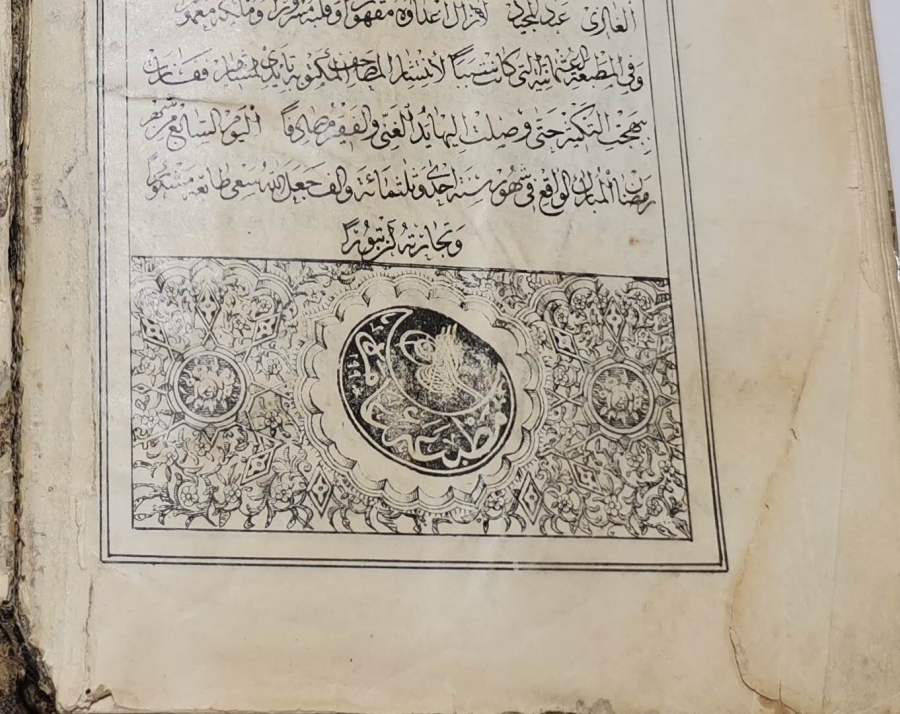 الغازى عبد المجيد لازال اعداؤه مقهورا وقلبه مسرورا وملكه معمورا
وفى المطبعة العثمانية التى كانت سببا لانتشار المصاحف المكتوبة بايدى
بهجت التكثير حتى وصلت اليها يد الغنى والفقير مصادفا اليوم السابع من شهر
رمضان المبارك الواقع فى شهور سنة احدى وثلثمائة والف جعل الله سعى طابعه مشكورا
وتجارته لن تبورا
مطبعهٔ